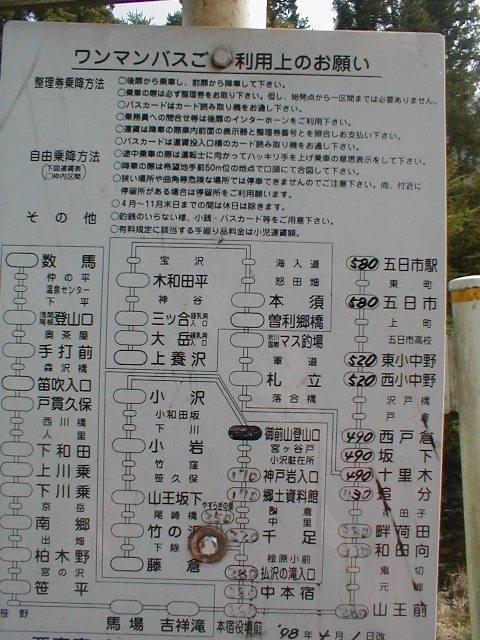 ワンマンバスご利用上のお願い
整理券乗降方法
○後扉から乗車し、前扉から降車して下さい。
○乗車の際は必ず整理券をお取り下さい。但し、始発点から一区間までは必要ありません。
○バスカードはカード読み取り機をお通し下さい。
○乗務員への問合せ等は後扉のインターホーンをご利用下さい。
○運賃は降車の際車内前面の表示器と整理券番号とを照合しお支払い下さい。
○バスカードは運賃投入口横のカード読み取り機をお通し下さい。
自由乗降方法
(下図運賃表□枠内区間)
○途中乗車の際は運転士に向かってハッキリ手を上げ乗車の意思表示をして下さい。
○降車の際は希望地手前50m位の地点で口頭にて合図して下さい。
○狭い場所や曲角等危険な場所では停車できませんのでご注意下さい。尚、付近に
停留所がある場合は停留所をご利用願います。
○4月~11月末日までの間は休日は除きます。
その他
○釣銭のいらない様、小銭・バスカード等をご用意下さい。
○有料規定に該当する手撮り品料金は小児運賃額。
数馬
仲の平
温泉センター
下平
浅間尾根登山口
奥茶屋
手打前
森沢橋
笛吹入口
戸貫久保
西川橋
人里
下和田
上川乗
下川乗
京岳
南郷
出畑
柏木野
宮の沢
笹平
笹野
馬場
吉祥滝
本宿役場前
宝沢
木和田平
神谷
三ッ合鍾乳洞入口
大岳鍾乳洞入口
上養沢
小沢
小和田坂
下川
小岩
竹窪
笹久保
山王坂下
尾崎橋
やすらぎの里
250
竹の
下除
藤倉
海入道
怒田畑
本須
曽利郷橋
秋川国際マス釣場
軍道
札立
落合橋
御前山登山口
宮ヶ谷戸
小沢駐在所
神戸岩入口
郷土資料館
中里
千足
桧原小前
払沢の滝入口
中本宿
580 五日市駅
東町
580 五日市
上町
五日市高校
520 東小中野
520 西小中野
沢戸橋
戸倉
490 西戸倉
490 坂下
490 十里木
追分
畔荷田
和田向
山王前
'98年4月1日改